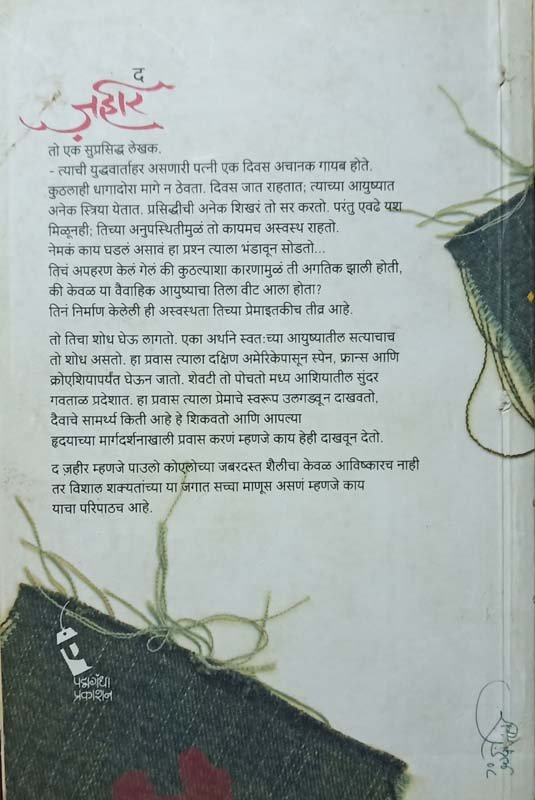 द
ज़हीर
तो एक सुप्रसिद्ध लेखक.
- त्याची युद्धवार्ताहर असणारी पत्नी एक दिवस अचानक गायब होते.
कुठलाही धागादोरा मागे न ठेवता. दिवस जात राहतात; त्याच्या आयुष्यात
अनेक स्त्रिया येतात. प्रसिद्धीची अनेक शिखरं तो सर करतो. परंतु एवढे यश
मिळूनही; तिच्या अनुपस्थितीमुळं तो कायमच अस्वस्थ राहतो.
नेमकं काय घडलं असावं हा प्रश्न त्याला भंडावून सोडतो...
तिचं अपहरण केलं गेलं की कुठल्याशा कारणामुळं ती अगतिक झाली होती,
की केवळ या वैवाहिक आयुष्याचा तिला वीट आला होता?
तिनं निर्माण केलेली ही अस्वस्थता तिच्या प्रेमाइतकीच तीव्र आहे.
तो तिचा शोध घेऊ लागतो. एका अर्थाने स्वतःच्या आयुष्यातील सत्याचाच
तो शोध असतो. हा प्रवास त्याला दक्षिण अमेरिकेपासून स्पेन, फ्रान्स आणि
क्रोएशियापर्यंत घेऊन जातो. शेवटी तो पोचतो मध्य आशियातील सुंदर
गवताळ प्रदेशात. हा प्रवास त्याला प्रेमाचे स्वरूप उलगडून दाखवतो,
दैवाचे सामर्थ्य किती आहे हे शिकवतो आणि आपल्या
हृदयाच्या मार्गदर्शनाखाली प्रवास करणं म्हणजे काय हेही दाखवून देतो.
द ज़हीर म्हणजे पाउलो कोएलोच्या जबरदस्त शैलीचा केवळ आविष्कारच नाही
तर विशाल शक्यतांच्या या जगात सच्चा माणूस असणं म्हणजे काय
याचा परिपाठच आहे.
पद्मगंधा
प्रकाशन